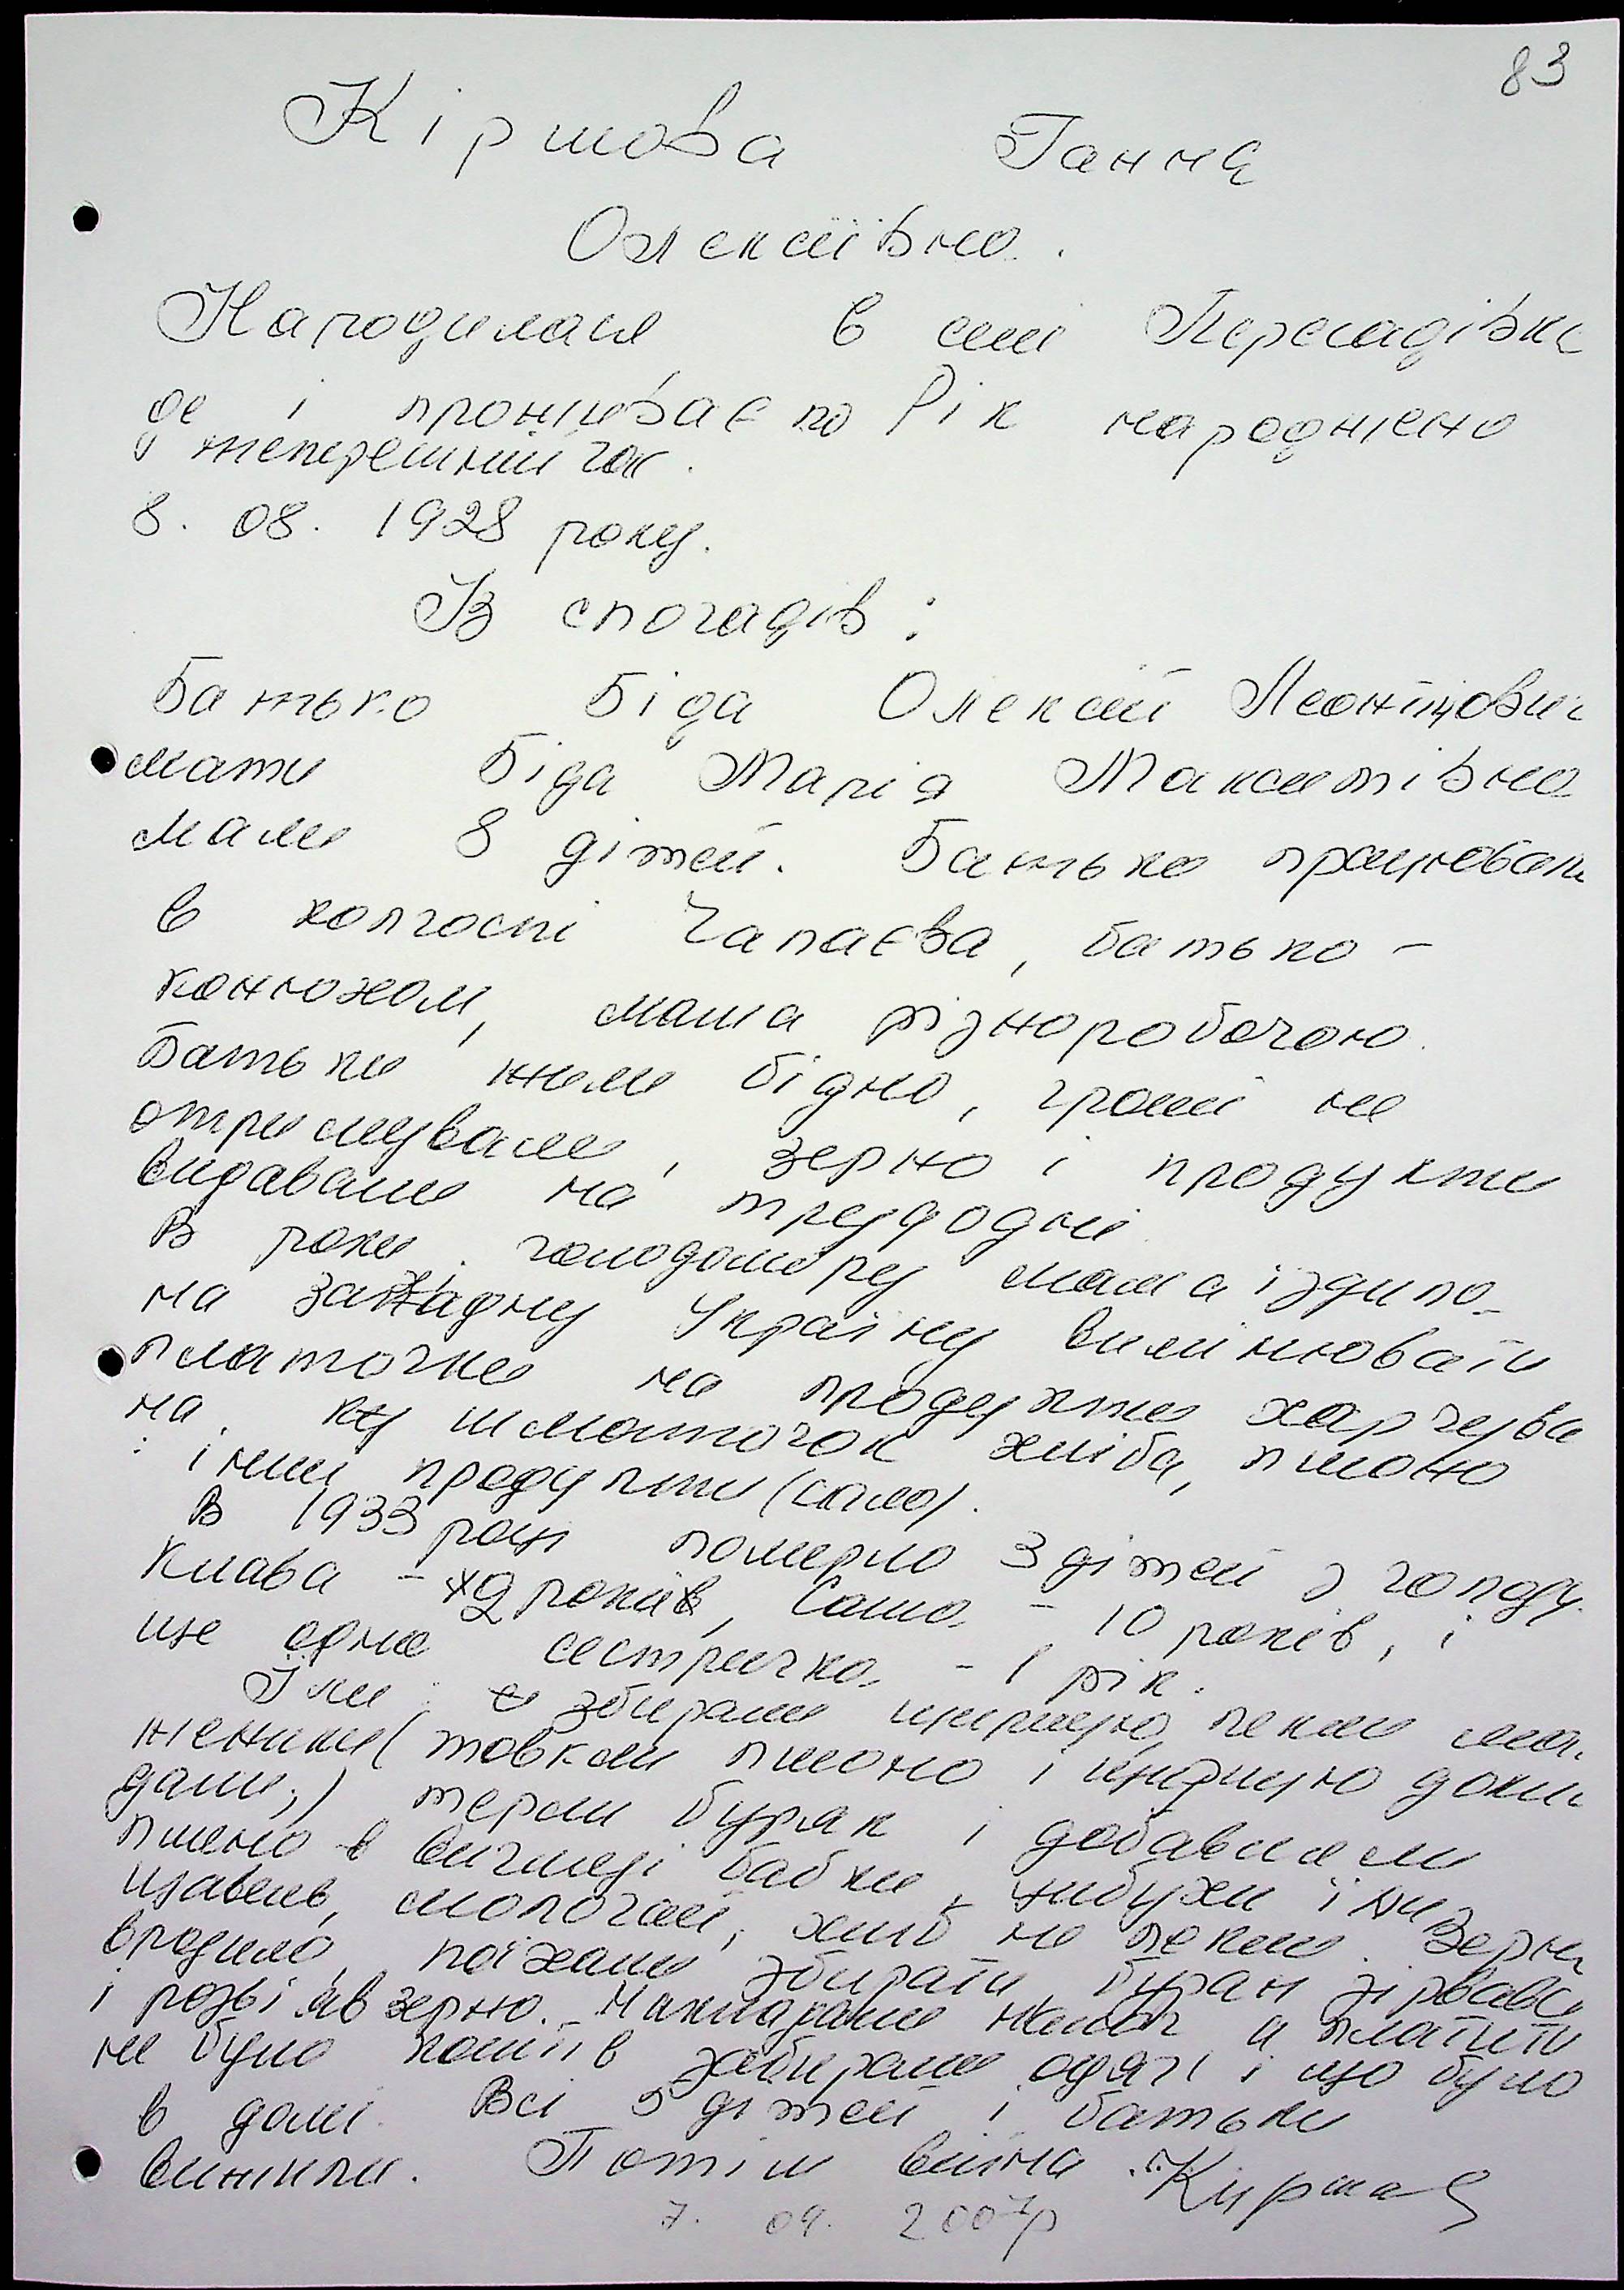 83
Кіршова Ганна
Олексіївна.
Народилася в селі Пересадівка
де і проживає по Рік народження
теперешній час.
8. 08. 1928 року.
Із спогадів:
Батько Біда Олексій Леонтійович
мати Біда Марія Максимівна
мали 8 дітей. Батьки працювали
в колгоспі Чапаєва, батько –
конюхом, мама різноробочою.
Батьки жили бідно, грошей не
отримували, зерно і продукти
видавали на трудодні
В роки голодомору мама їздила
на Західну Україну вимінювати
платочки на продукти харчува
на шматочок хліба, пшоно
і інші продукти (сало).
В 1933 році померло 3 дітей з голоду.
Клава – 2 роки, Саша – 10 років, і
ще одна сестричка – 1 рік.
Їли: збирали щирицю, пекли мата
женики (товкли пшоно і щирицю доки
дали;) терли буряк і добавляли
пшено в вигляді бабки, жибухи їли,
щавель, молочай, хліб не пекли. Зерно
вродило, поїхали збирати буран зірвався
і розвіяв зерно. Накладали налог а платити
не було коштів забирали одяг і що було
в домі. Всі 5 дітей і батьки
вижили. Потім війна. Кирша
7. 09. 2007р